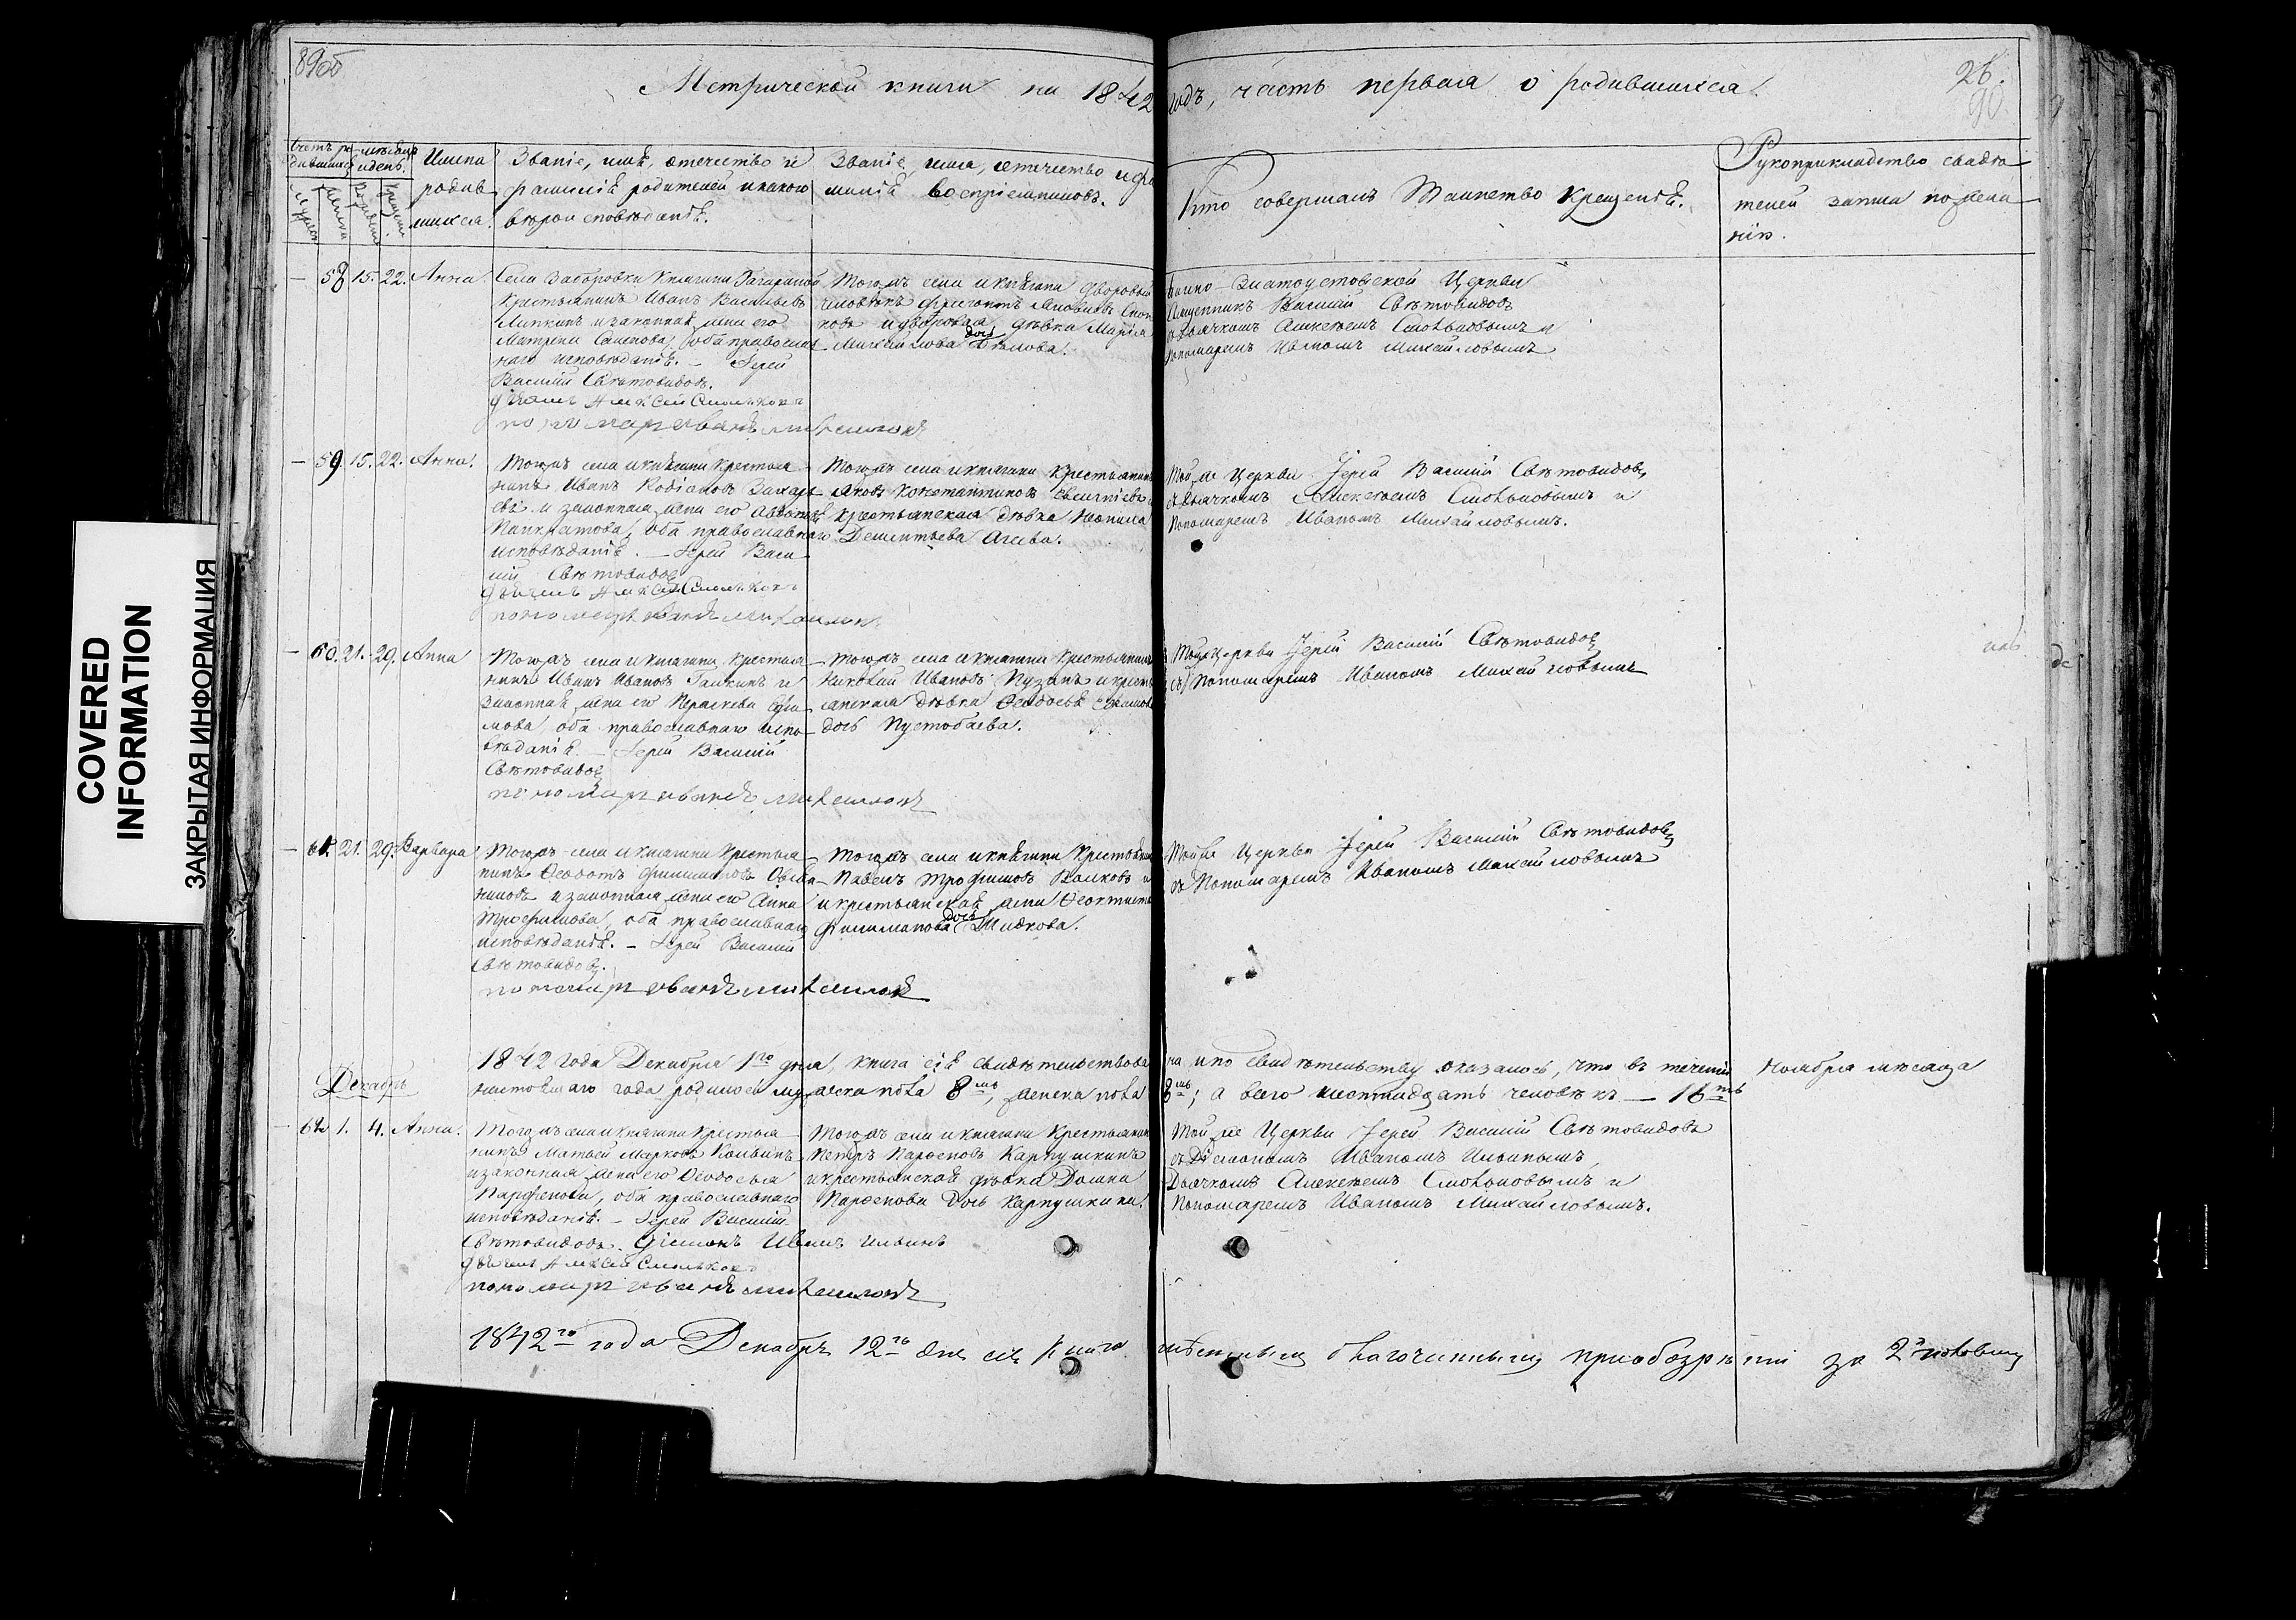 89об
26.
90
Метрической книги на 1842 годъ, часть первая о родившихся.
Счетъ ро- мѣсяцъ
дившихся и день.
Имена
родив
шихся.
Званіе, имя, отечество и
фамилія родителей и какого
вѣроисповѣданія.
Званіе, имя, отечество и фа
милія воспріемниковъ.
Кто совершалъ Таинство Крещенія.
Рукоприкладство свидѣ
телей записи по жела
нію.
— 58 15. 22. Анна.
Села Заборовки Княгини Гагариной
Крестьянинъ Иванъ Васильевъ
Липкинъ и законная жена его
Матрена Семенова, оба православ
наго исповѣданія. — Іерей
Василій Свѣтовидовъ.
дьячекъ Алексей Смольковъ
пономарь иванъ михаиловъ
Тогожъ села и княгини дворовый
человѣкъ
и дворовая дѣвка Марія
Михайлова дочь Бѣлова.
Златоустовской Церкви
Священникъ Василій Свѣтовидовъ
съ дьячкомъ Алексѣемъ Смольковымъ и
Пономаремъ Иваномъ Михайловымъ
— 59. 15. 22. Анна.
Тогожъ села и княгини Крестья
нинъ Иванъ Родіоновъ Захарь
евъ и законная жена его
Панкратова, оба православнаго
исповѣданія. — Іерей Васи
лій Свѣтовидовъ
дьячекъ Алексей Смольковъ
пономарь иванъ михаиловъ
Тогожъ села и княгини Крестьянинъ
Яковъ Константиновъ
крестьянская дѣвка Неонила
Дементьева Агеева.
Той же Церкви Іерей Василій Свѣтовидовъ,
съ дьячкомъ Алексѣемъ Смольковымъ и
Пономаремъ Иваномъ Михайловымъ.
— 60. 21. 29. Анна
Тогожъ села и княгини крестья
нинъ Иванъ Ивановъ Галкинъ и
законная жена его Параскева Ефи
мова, оба православнаго испо
вѣданія. — Іерей Василій
Свѣтовидовъ
пономарь иванъ михаиловъ
Тогожъ села и княгини Крестьянинъ
Николай Ивановъ Пузанъ и крестъ
янская дѣвка Ѳеодосья
дочь Пустобаева.
Той же Церкви Іерей Василій Свѣтовидовъ
съ Пономаремъ Иваномъ Михайловымъ
— 61. 21. 29. Варвара
Тогожъ села и княгини Крестья
нинъ Ѳеодотъ Филимоновъ Овсян
никовъ и законная жена его Анна
Трофимова, оба православнаго
исповѣданія. — Іерей Василій
Свѣтовидовъ.
пономарь иванъ михаиловъ
Тогожъ села и княгини Крестьянинъ
Павелъ Трофимовъ Волковъ и
и крестьянская жена Ѳеоктиста
Филимонова дочь Жидкова.
Той же Церкви Іерей Василій Свѣтовидовъ
съ Пономаремъ Иваномъ Михайловымъ
1842 года Декабря 1го дня, книга сія свидѣтельствована и по свидѣтельству оказалось, что въ теченіи Ноября мѣсяца
настоящаго года родилось мужеска пола 8мь, женска пола 8мь; а всего шестнадцать человѣкъ — 16ть
Декабрь
— 62 1. 4. Анна.
Тогожъ села и княгини Крестья
нинъ Матвей Марковъ
и законная жена его Ѳеодосья
Парфенова, оба православнаго
исповѣданія. — Іерей Василій
Свѣтовидовъ. Діаконъ Иванъ Ильинъ
дьячекъ Алексей Смольковъ
пономарь иванъ михаиловъ
Тогожъ села и княгини Крестьянинъ
Петръ Парѳеновъ Карпушкинъ
и крестьянская дѣвка Домна
Парѳенова дочь Карпушкина.
Той же Церкви Іерей Василій Свѣтовидовъ
съ Діакономъ Иваномъ Ильинымъ,
Дьячкомъ Алексѣемъ Смольковымъ и
Пономаремъ Иваномъ Михайловымъ.
1842го года Декабря 12го дня сія книга мѣстнымъ благочиннымъ при обозрѣніи за 2ю половину
COVERED
INFORMATION
ЗАКРЫТАЯ ИНФОРМАЦИЯ